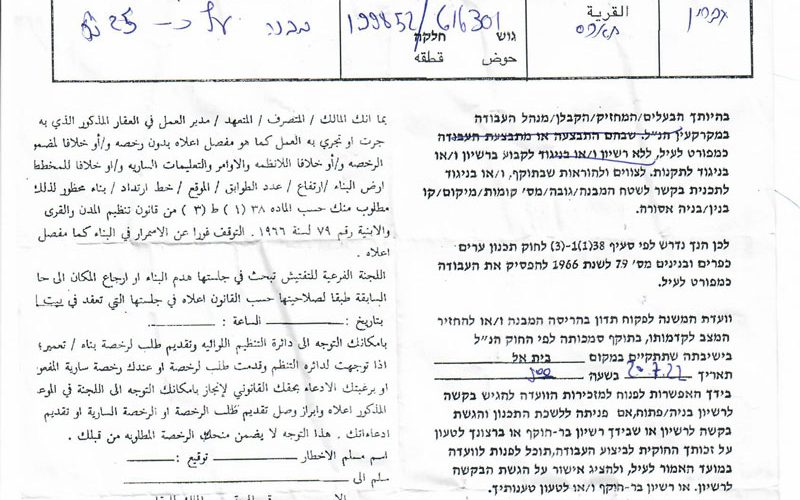 القرية
גוש חלקה
حوض قطعه
199852/616301
מבנה על כ- 25
בהיותך הבעלים/המחזיק/הקבלן/מנהל העבודה
במקרקעין הנ"ל. שבהם התבצעה או מתבצעת העבודה
כמפורט לעיל, ללא רשיון ו/או בניגוד לקבוע ברשיון ו/או
בניגוד לתקנות. לצווים ולהוראות שבתוקף, ו/או בניגוד
לתכנית בקשר לשטח המבנה/גובה/מס' קומות/מיקום/קו
בנין/בניה אסורה.
לכן הנך נדרש לפי סעיף 38(1)-(3) לחוק תכנון ערים
כפרים ובנינים מס' 79 לשנת 1966 להפסיק את העבודה
כמפורט לעיל.
וועדת המשנה לפקוח תדון בהריסה המבנה ו/או להחזיר
המצב לקדמותו, בתוקף סמכותה לפי החוק הנ"ל
בישיבתה שתתקיים במקום בית אל
תאריך 20.7.22 בשעה 900
בידך האפשרות לפנות למזכירות הוועדה להגיש בקשה
לרשיון בניה/פתוח,אם פניתה ללשכת התכנון והגשת
בקשה לרשיון או שבידך רשיון בר-תוקף או ברצונך לטעון
על זכותך החוקית לביצוע העבודה,תוכל לפנות לוועדה
במועד האמור לעיל, ולהציג אישור על הגשת הבקשה
לרשיון. או רשיון בר-תוקף ו/או לטעון טענותיך.
بما انك المالك / المتصرف / المتعهد / مدير العمل في العقار المذكور الذي به
جرت او تجري به العمل كما هو مفصل اعلاه بدون رخصه و/أو خلافا لمضمو
الرخصه و/أو خلافا للانظمه والاوامر والتعليمات الساريه و/او خلافا للمخطط
ارض البناء /ارتفاع / عدد الطوابق / الموقع / خط ارتداد / بناء محظور لذلك
مطلوب منك حسب الماده ٣٨ (١) ط (٣) من قانون تنظيم المدن والقرى
والابنية رقم ٧٩ لسنة ١٩٦٦. التوقف فورا عن الاسمرار في البناء كما مفصل
اعلاه .
اللجنة الفرعية للتفتيش تبحث في جلستها هدم البناء او ارجاع المكان الى حا
السابقة طبقا لصلاحيتها حسب القانون اعلاه في جلستها التي تعقد في بيت
بتاريخ : الساعة :
بامكانك التوجه الى دائرة التنظيم اللوائيه وتقديم طلب لرخصة بناء / تعمير؛
اذا توجهت لدائره التنظم وقدمت طلب لرخصة او عندك رخصة سارية المفعو
او برغبتك الادعاء بحقك القانوني لإنجاز بامكانك التوجه الى اللجنة في الموع
المذكور اعلاه وابراز وصل تقديم طلب الرخصة او الرخصة السارية او تقديم
ادعاءاتك . هذا التوجه لا يضمن منحك الرخصة المطلوبه من قبلك .
اسم مسلم الاخطار توقيع :
سلم الى